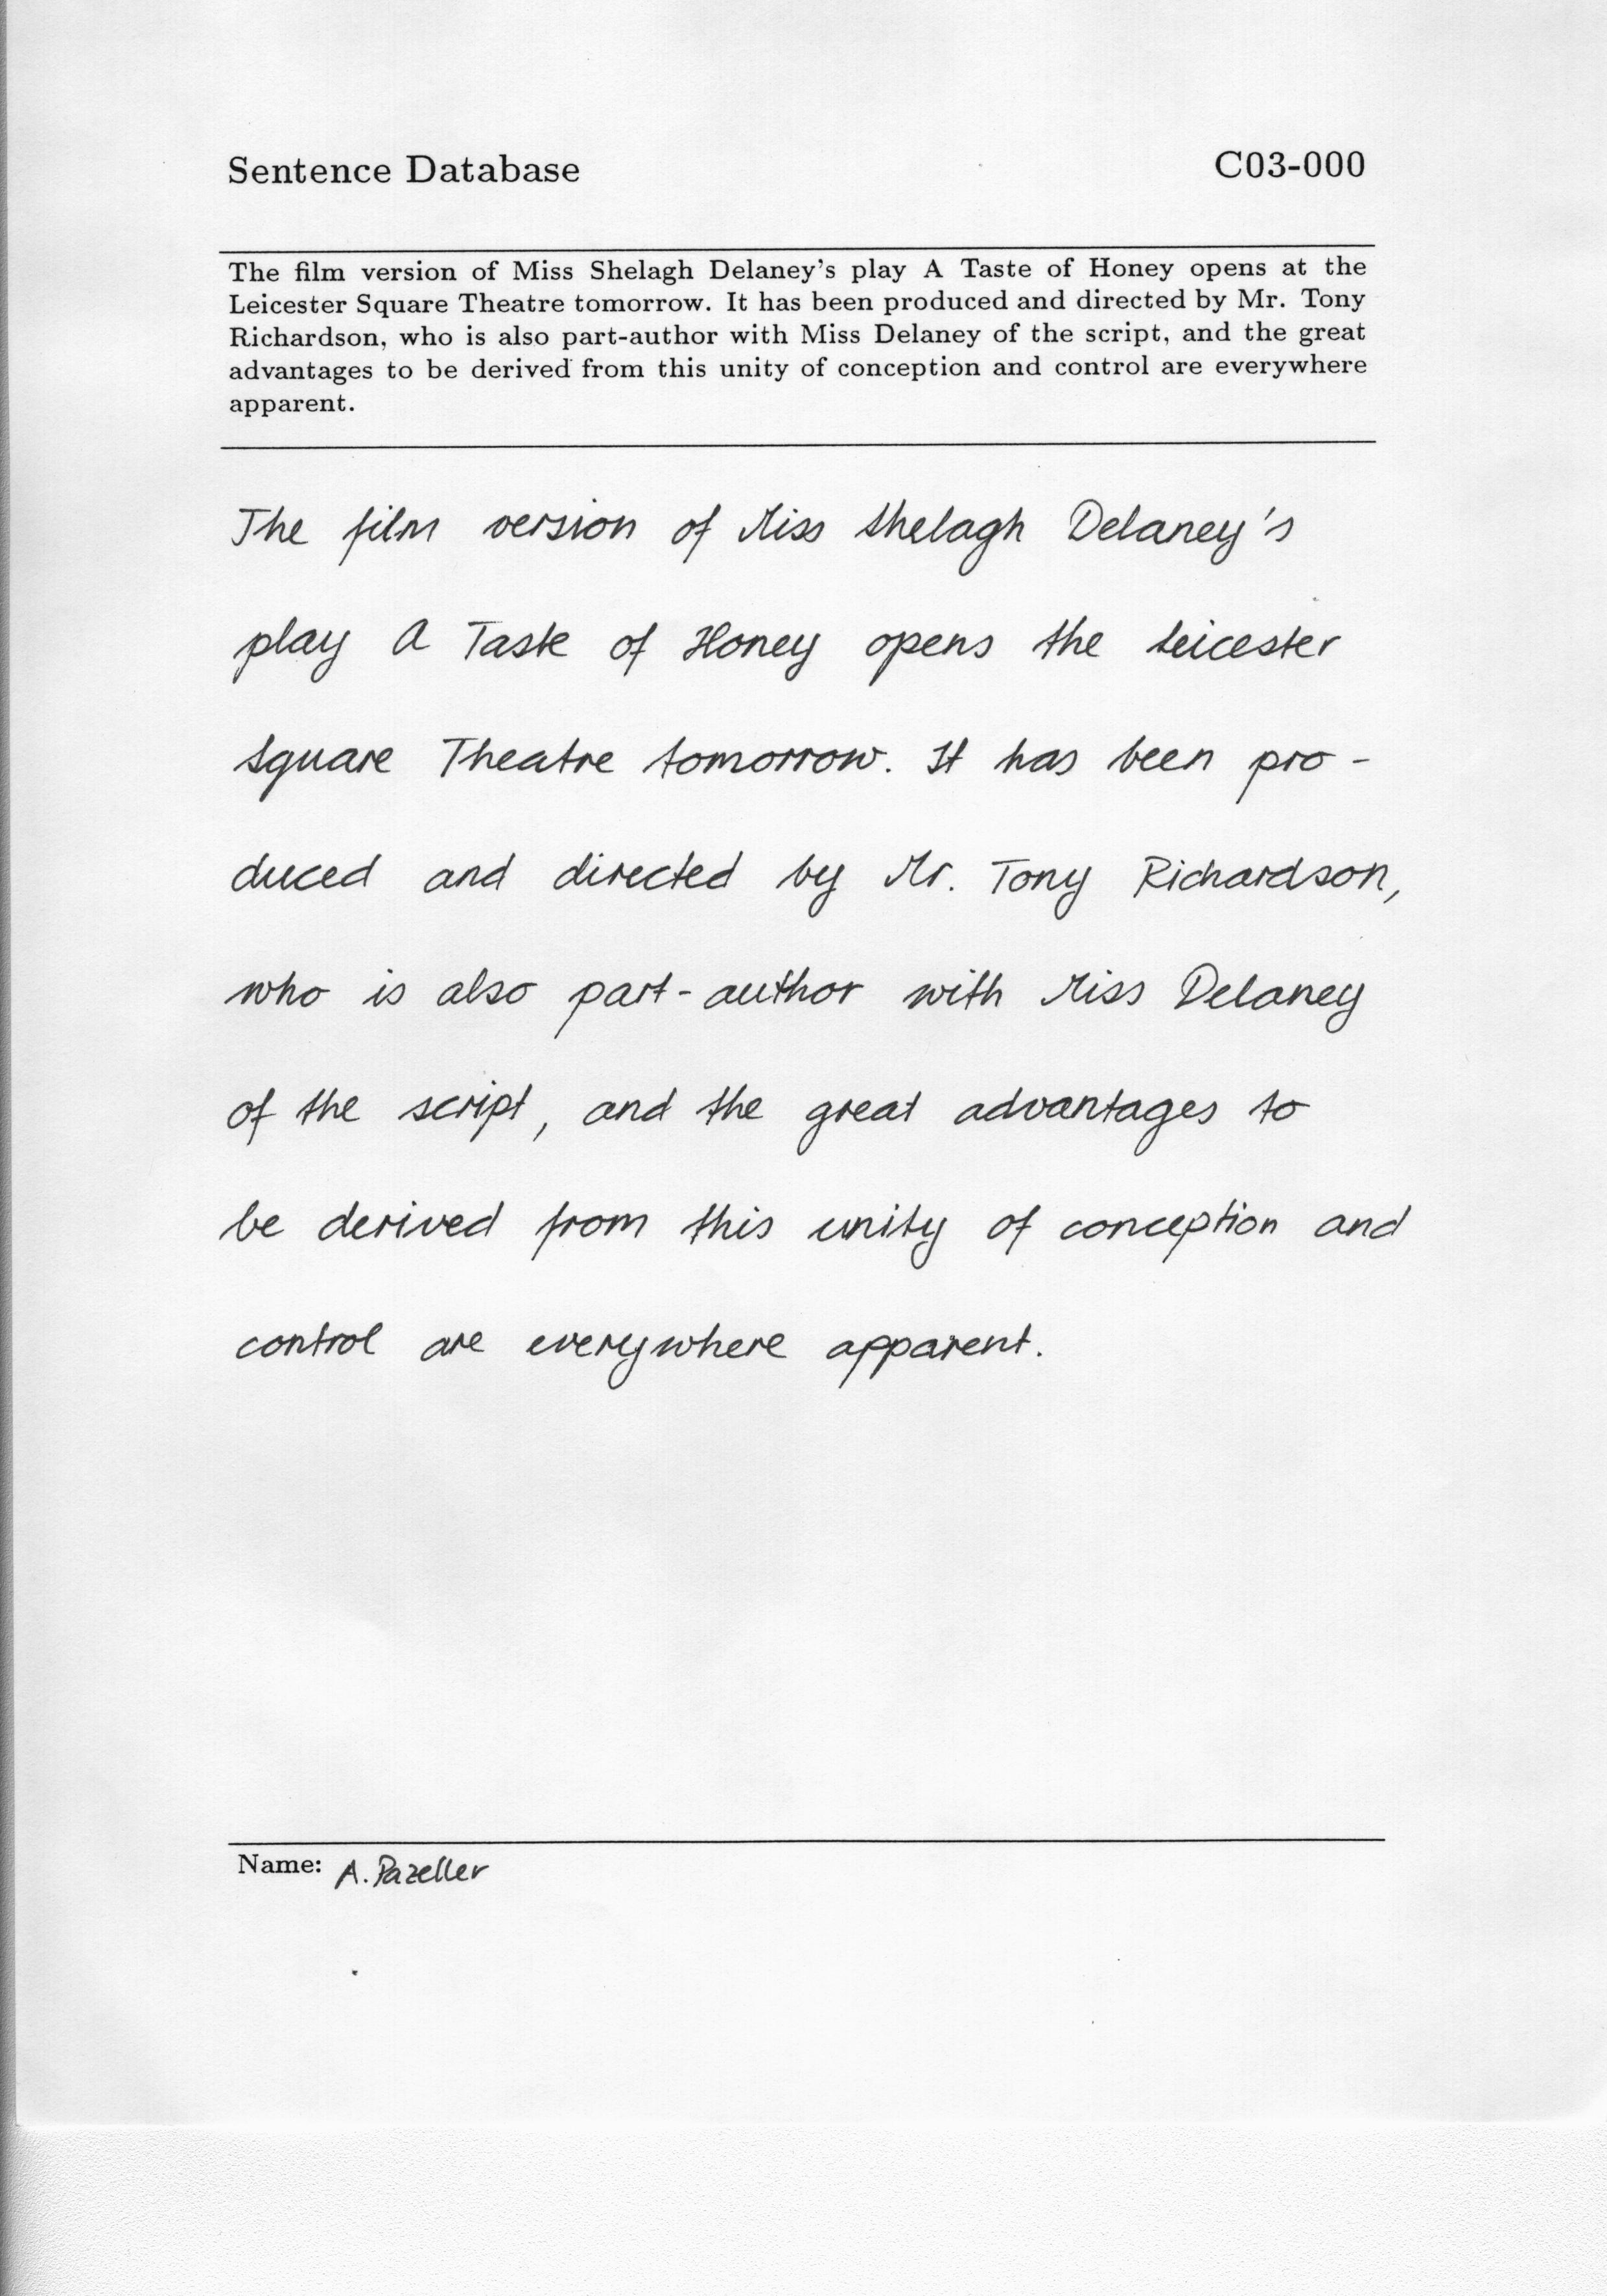 Sentence Database
C03-000
The film version of Miss Shelagh Delaney's play A Taste of Honey opens at the
Leicester Square Theatre tomorrow. It has been produced and directed by Mr. Tony
Richardson, who is also part-author with Miss Delaney of the script, and the great
advantages to be derived from this unity of conception and control are everywhere
apparent.
The film version of Miss Shelagh Delaney's
play A Taste of Honey opens the Leicester
Square Theatre tomorrow. It has been pro-
duced and directed by Mr. Tony Richardson,
who is also part-author with Miss Delaney
of the script, and the great advantages to
be derived from this unity of conception and
control are everywhere apparent.
Name: A. Pazeller